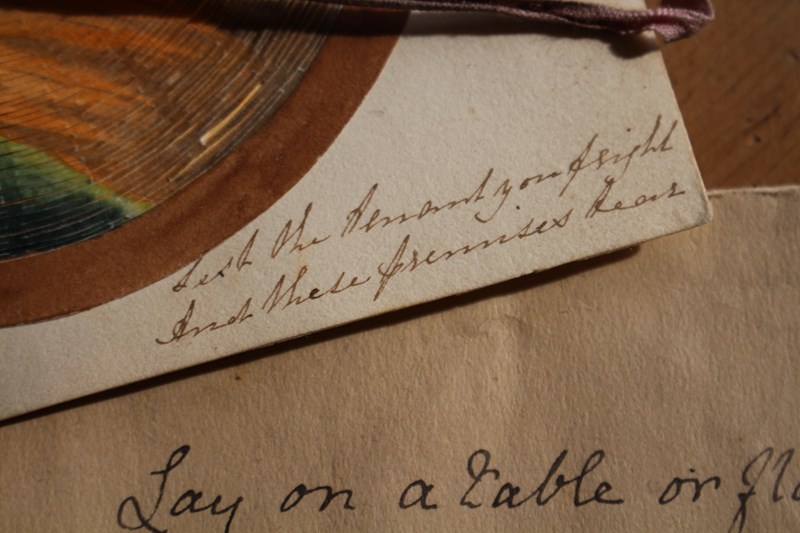 Lest the Tenant you fright
And these premises tear
Lay on a Table or